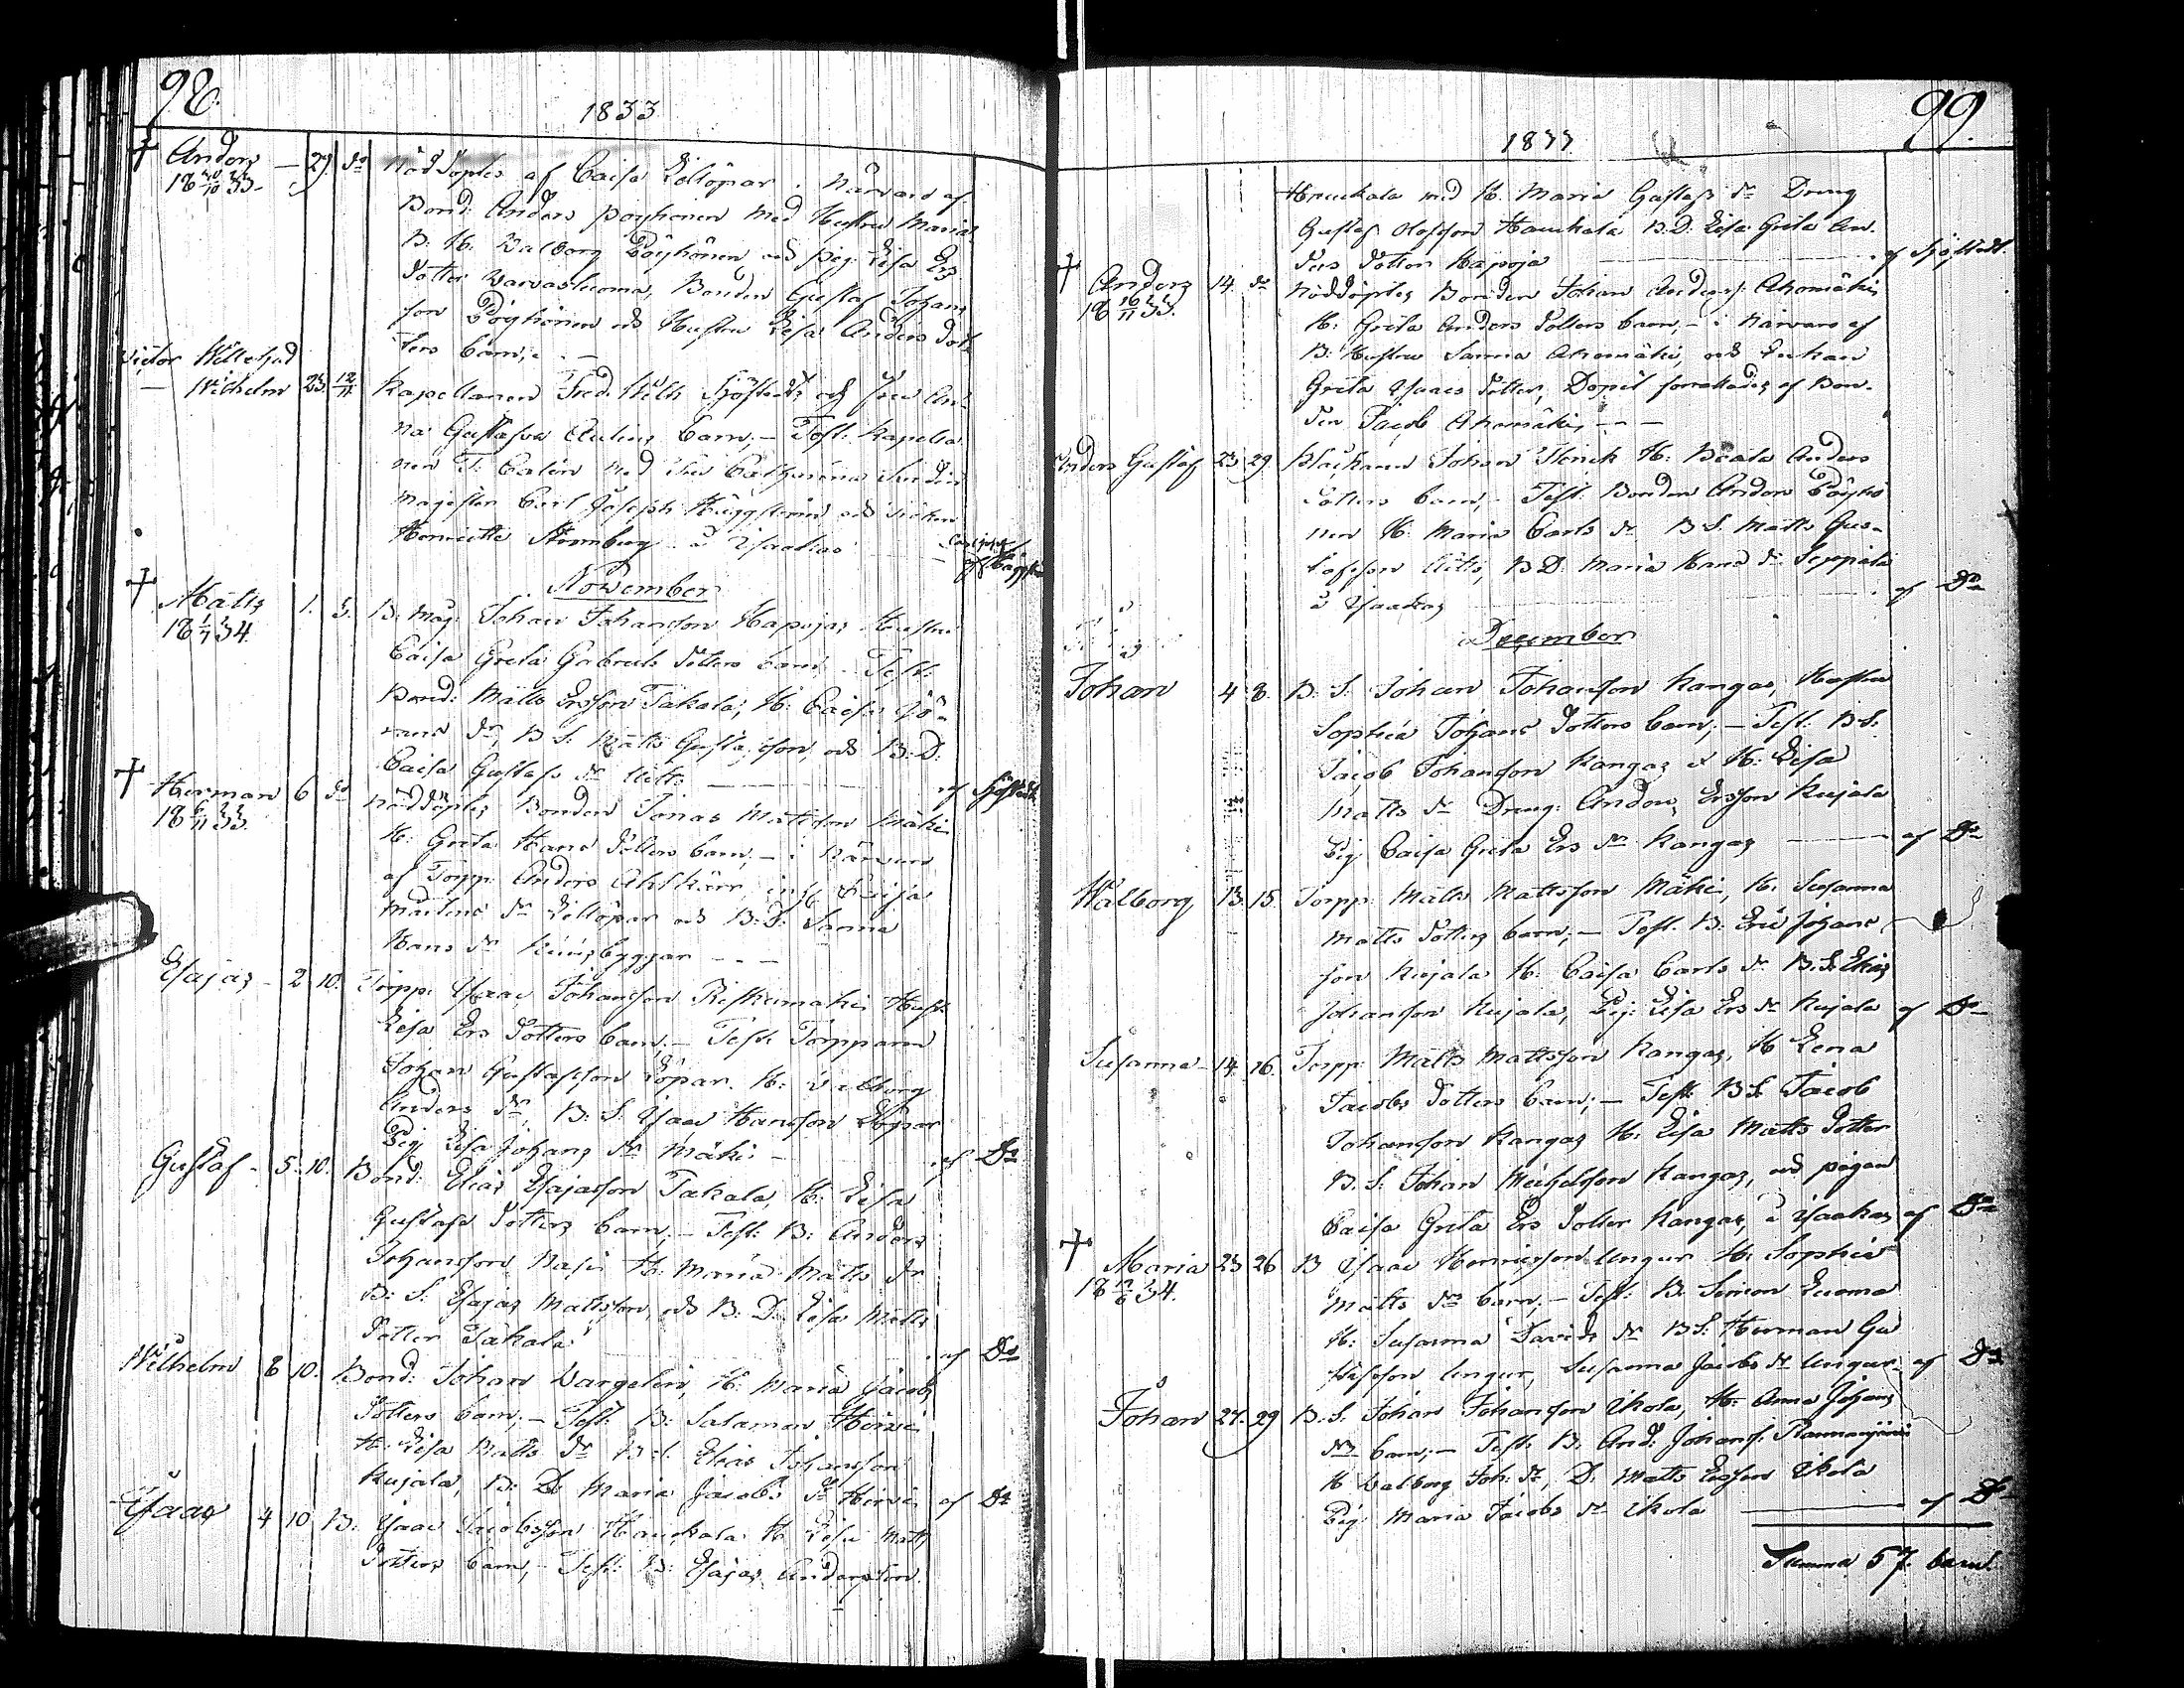 98.
1833
† Anders — 29 do Nöddöptes af Caisa Lillöpar i närvaro af
18 20/10 33. Bond. Anders Pöyhönen med Hustru Maria
B. H. Walborg Pöyhönen och pig. Lisa Ers
dotter Warvasluoma, Bonden Gustaf Johans
son Pöyhönen och Hustru Lisa Anders dot
ters barn, —
Victor Willehad
— Wilhelm 23. 12/11 Kapellanen Fred. Wilh. Sjöstedts och Fru An-
na Gustafva Aulins barn; — Test. Kapella
nen J. Calén med Fru Catharina
Magister Carl Joseph Häggström och
Henriette Stromberg å Ysaakas
af Häggström
November
† Matts 1. 5. B. måg Johan Johansson Kapojas Hustru
18 1/7 34. Caisa Greta Gabriels dotters barn Test.
Bond. Matts Ersson Takala, H. Caisa Jö-
rans dr, B. S. Matts Gustafsson, och B. D.
Caisa Gustafs dr — af Sjöstedt.
† Herman 6 do nöddöptes Bonden Jonas Mattsson Mäki
18 6/11 33. H. Greta Hans dotters barn, — i närvaro
af Torpp. Anders Ahlskärr, Caisa
Matts dr Lillöpar och B. D. Sanna
Hans dr — — —
Esajas — 2 10. Torpp. Isaac Johansson Riskumäki Hust.
Lisa Ers dotters barn; — Test. Torpparen
Johan Gustafsson Löpar. H. Valborg
Anders dr, B. S. Isaac Hansson Löpar
Pig. Lisa Johans dr Mäki — af Do
Gustaf — 5. 10. Bond: Elias Esajasson Takala, H. Lisa
Gustafs dotters barn; — Test. B. Anders
Johansson Nasi H. Maria Matts dr
B. S. Esajas Mattsson, och B. D. Lisa Matts
dotter Takala af Do
Wilhelm 8 10. Bond. Johan Wargelin, H. Maria Jacobs
dotters barn; — Test. B. Salamon Hirvi
H. Lisa Matts dr B. S. Elias Johansson
Kujala, B. D. Maria Jacobs dr Hirvi af Do
Ysaac 4 10 B. Isaac Jacobsson Haukala H. Lisa Matts
dotters barn, — Test. B. Esajas Andersson
99.
1833
Haukala med H. Maria Gustafs dr Dreng
Gustaf Olofsson Haukala B. D. Lisa Greta An-
ders dotter Kapoja — af Sjöstedt.
† Anders 14. do Nöddöptes Bonden Johan Anderss. Ahomäkis
18 16/11 33. H. Greta Anders dotters barn, — i närvaro af
B. Hustru Sanna Ahomäki, och Enkan
Greta Isaacs dotter, Dopet forrättades af Bon-
den Jacob Ahomäki, — — —
Anders Gustaf 23 29. Johan Henrik H. Beata Anders
dotters barn, — Test. Bonden Anders Pöyhö
nen H. Maria Carls dr B S. Matts Gus-
tafsson B D. Maria Hans dr Seppälä
å Ysaakas — af Do
December
Johan 4 8. B. S. Johan Johansson Kangas, Hustru
Sophia Johans dotters barn; — Test. B S.
Jacob Johansson Kangas & H. Lisa
Matts dr Dreng. Anders Ersson Kujala
Pig. Caisa Greta Ers dr Kangas — af Do
Walborg 13. 15. Torpp. Matts Mattsson Mäki, H. Susanna
Matts dotters barn; — Test. B. Eric Johans
son Kujala H. Caisa Carls dr B. S. Elias
Johansson Kujala, Pig. Lisa Ers dr Kujala af Do
Susanna — 14. 16. Torpp. Matts Mattsson Kangas, H Lena
Jacobs dotters barn; — Test. B S. Jacob
Johansson Kangas H. Lisa Matts dotter
B. S. Johan Michelsson Kangas, och pigan
Caisa Greta Ers dotter Kangas, å Ysaakas af Do
† Maria 23 26 B Isaac Henricsson Ungur H. Sophia
18 12/6 34. Matts dr barn; — Test. B. Simon Luoma
H. Susanna Davids dr B S. Herman Gu
stafsson Ungur, Susanna Jacobs dr Ungur af Do
Johan 27. 29 B. S. Johan Johansson Ikola, H. Anna Johans
dr barn; — Test. B. And. Johanss. Rannanjärvi
H Walborg Joh. dr, D. Matts Ersson Ikola
Pig Maria Jacobs dr Ikola — af Do
Summa 57 barn.